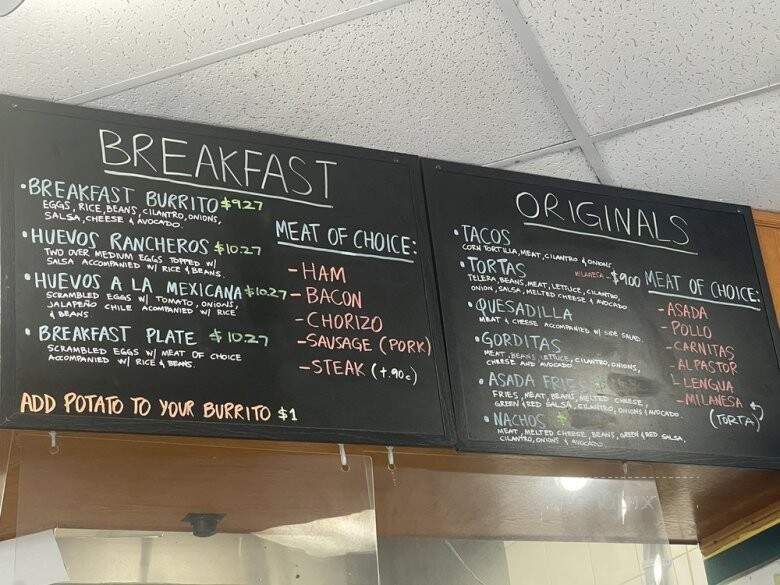 BREAKFAST
• BREAKFAST BURRITO $9.27
EGGS, RICE, BEANS, CILANTRO, ONIONS,
SALSA, CHEESE & AVOCADO.
• HUEVOS RANCHEROS $10.27
TWO OVER MEDIUM EGGS TOPPED W/
SALSA ACCOMPANIED W/ RICE & BEANS.
• HUEVOS A LA MEXICANA $10.27
SCRAMBLED EGGS W/ TOMATO, ONIONS,
JALAPEÑO CHILE ACOMPANIED W/ RICE
& BEANS
• BREAKFAST PLATE $10.27
SCRAMBLED EGGS W/ MEAT OF CHOICE
ACCOMPANIED W/ RICE & BEANS.
MEAT OF CHOICE:
- HAM
- BACON
- CHORIZO
- SAUSAGE (PORK)
- STEAK (+.90c)
ADD POTATO TO YOUR BURRITO $1
ORIGINALS
• TACOS
CORN TORTILLA, MEAT, CILANTRO & ONIONS
• TORTAS MILANESA - $9.00
TELERA, BEANS, MEAT, LETTUCE, CILANTRO,
ONION, SALSA, MELTED CHEESE & AVOCADO
• QUESADILLA
MEAT & CHEESE ACCOMPANIED W/ SIDE SALAD
• GORDITAS
MEAT, BEANS, LETTUCE, CILANTRO, ONIONS,
CHEESE AND AVOCADO
• ASADA FRIES
FRIES, MEAT, BEANS, MELTED CHEESE,
GREEN & RED SALSA, CILANTRO, ONIONS & AVOCADO
• NACHOS
MEAT, MELTED CHEESE, BEANS, GREEN & RED SALSA,
CILANTRO, ONIONS & AVOCADO
MEAT OF CHOICE:
- ASADA
- POLLO
- CARNITAS
- AL PASTOR
- LENGUA
- MILANESA
(TORTA)